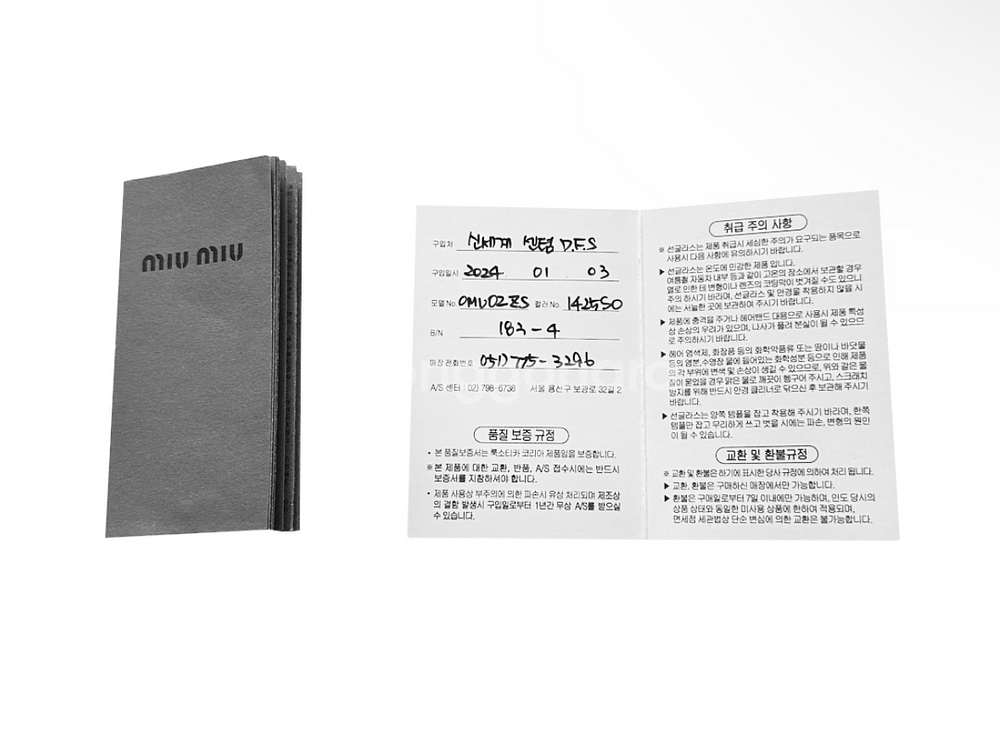 miu miu
구입처 신세계 센텀 D.F.S
구입일시 2024 01 03
모델 No 0MU02ZS 컬러 No. 1425S0
B/N 183-4
매장 전화번호 051) 775-3296
A/S 센터 : 02) 798-6738 서울 용산구 보광로 32길 2
품질 보증 규정
• 본 품질보증서는 룩소티카 코리아 제품임을 보증합니다.
※ 본 제품에 대한 교환, 반품, A/S 접수시에는 반드시
보증서를 지참하셔야 합니다.
• 제품 사용상 부주의에 의한 파손시 유상 처리되며 제조상
의 결함 발생시 구입일로부터 1년간 무상 A/S를 받으실
수 있습니다.
취급 주의 사항
※ 선글라스는 제품 취급시 세심한 주의가 요구되는 품목으로
사용시 다음 사항에 유의하시기 바랍니다.
▶ 선글라스는 온도에 민감한 제품 입니다.
여름철 자동차 내부 등과 같이 고온의 장소에서 보관할 경우
열로 인한 테 변형이나 렌즈의 코팅막이 벗겨질 수도 있으니
주의 하시기 바라며, 선글라스 및 안경을 착용하지 않을 시
에는 서늘한 곳에 보관하여 주시기 바랍니다.
▶ 제품에 충격을 주거나 헤어밴드 대용으로 사용시 제품 특성
상 손상의 우려가 있으며, 나사가 풀려 분실이 될 수 있으므
로 주의하시기 바랍니다.
▶ 헤어 염색제, 화장품 등의 화학약품류 또는 땀이나 바닷물
등의 염분, 수영장 물에 들어있는 화학성분 등으로 인해 제품
의 각 부위에 변색 및 손상이 생길 수 있으므로, 위와 같은 물
질이 묻었을 경우 맑은 물로 깨끗이 헹구어 주시고, 스크래치
방지를 위해 반드시 안경 클리너로 닦으신 후 보관해 주시기
바랍니다.
▶ 선글라스는 양쪽 템플을 잡고 착용해 주시기 바라며, 한쪽
템플만 잡고 무리하게 쓰고 벗을 시에는 파손, 변형의 원인
이 될 수 있습니다.
교환 및 환불규정
※ 교환 및 환불은 하기에 표시한 당사 규정에 의하여 처리 됩니다.
▶ 교환, 환불은 구매하신 매장에서만 가능합니다.
▶ 환불은 구매일로부터 7일 이내에만 가능하며, 인도 당시의
상품 상태와 동일한 미사용 상품에 한하여 적용되며,
면세점 세관법상 단순 변심에 의한 교환은 불가능합니다.